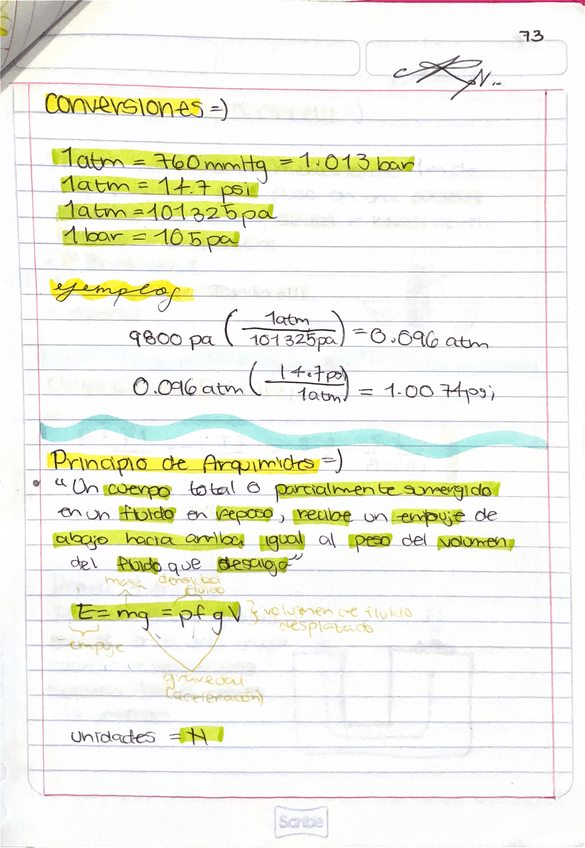 73
conversiones =)
1atm = 760 mmHg = 1.013 bar
1atm = 14.7 psi
1atm = 101325 pa
1 bar = 105 pa
ejemplos
9800 pa ( 1atm / 101325 pa ) = 0.096 atm
0.096 atm ( 14.7 psi / 1atm ) = 1.0074 psi
Principio de Arquimides =)
• "Un cuerpo total o parcialmente sumergido
en un fluido en reposo, recibe un empuje de
abajo hacia arriba igual al peso del volumen
del fluido que desaloja"
masa densidad
fluido
E = mg = pf gV } volumen de fluido
desplatado
empuje
gravedad
(aceleración)
unidades = N
Scribe